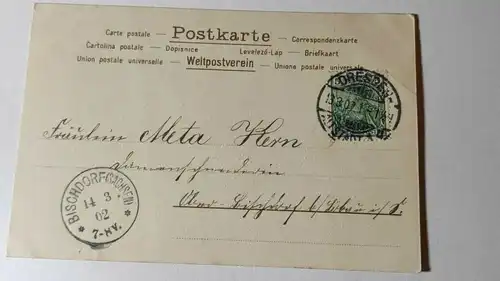 Carte postale — Postkarte — Correspondenzkarte
Cartolina postale — Dopisnice Levelező-Lap — Briefkaart
Union postale universelle — Weltpostverein — Unione postale universale
DRESDEN-
ALTSTADT
Fräulein Meta Hern
Damenschneiderin
Ober-Bischdorf b/Löbau i/S.
BISCHDORF (SACHSEN)
14 3
02
* 7-8V. *